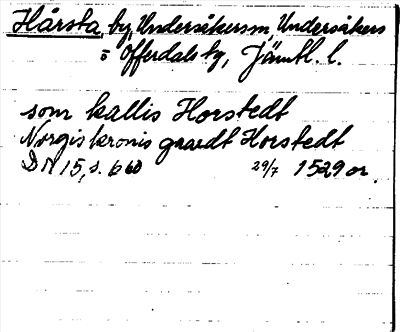 Hårsta, by, Undersåkers sn, Undersåkers
o Offerdals tg, Jämtl. l.
som kallis Horstedt
Norgis kronis gaardt Horstedt
DN 15, s. 660 29/7 1529 or.